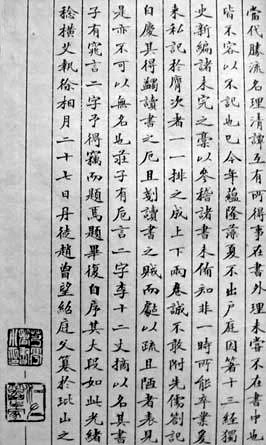 當代勝流名理清譚互有所得事在書外理未嘗不在書中也
皆不容以不記也已今年蘊隆蕩夏不出戶庭因箸十三經獨
史新編諸未完之稾以參稽諸書未備知非一時所能卒業乞
來私記於膺次者一一排之成上下兩卷誠不敢附先儒劄記
自慶其得蠲讀書之厄且刬讀書之賊而㱃以疏且陋者表見
是亦不可以無名也莊子有卮言二字李十二丈摘以名其書
子有窕言二字予得竊而題焉題畢復自序其大段如此光緒
稔橫艾執徐相月二十七日丹徒趙曾望紹庭父篹於玭山之